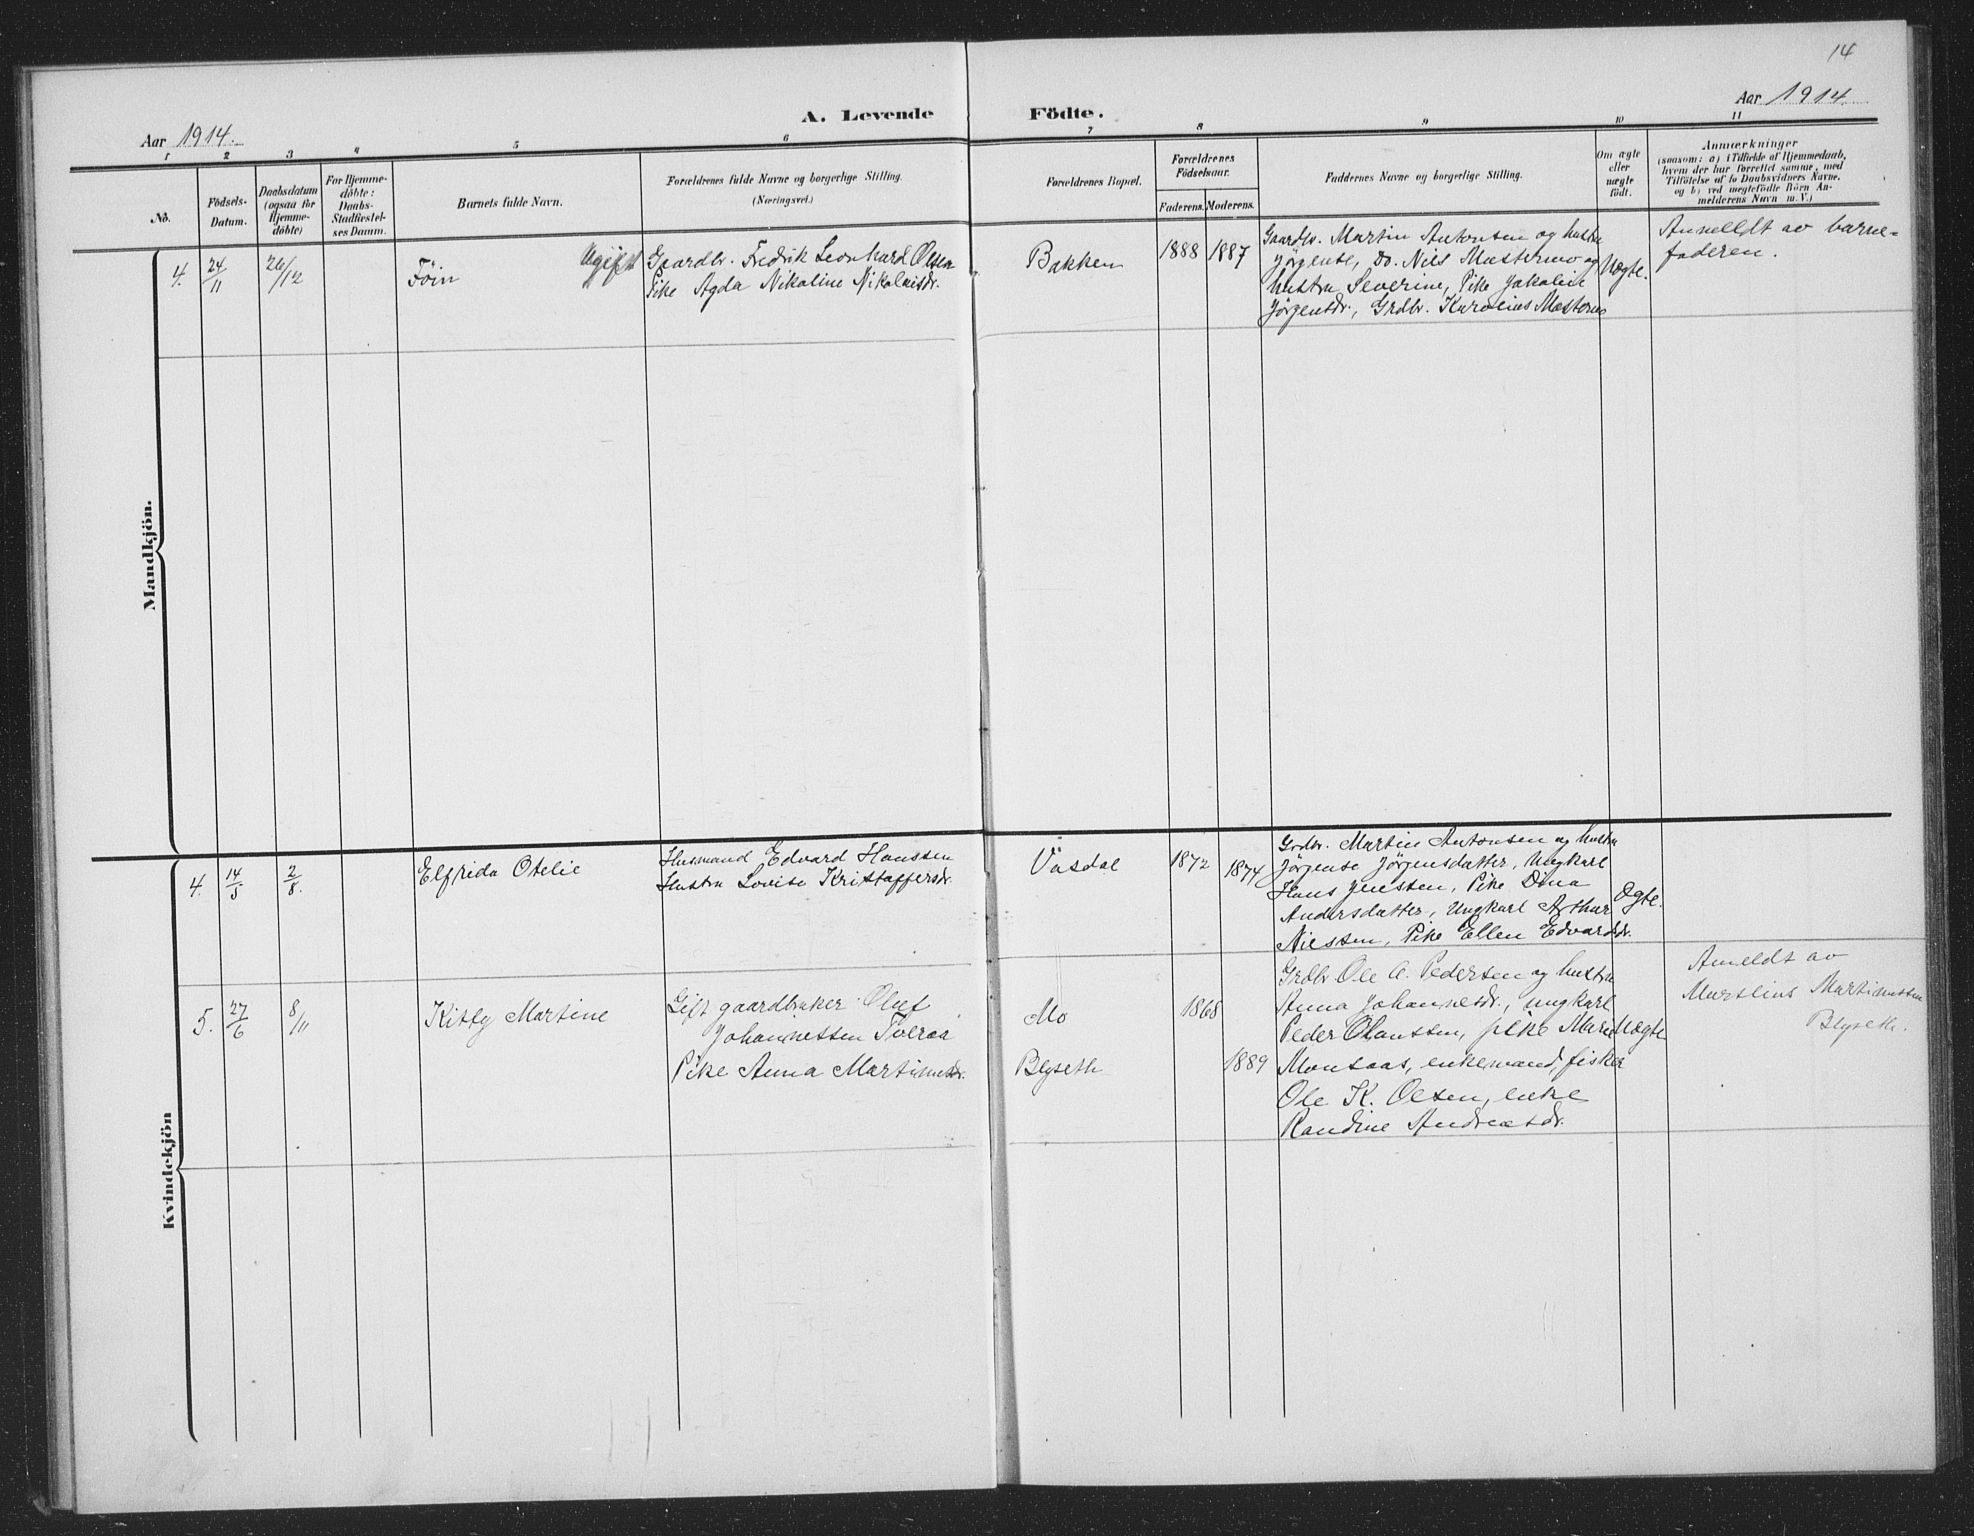 14
Aar 1914.
A. Levende Födte.
Aar 1914.
1 2 3 4 5 6 7 8 9 10 11
No.
Födsels-
Datum.
Daabsdatum
(ogsaa for
Hjemme-
döbte)
For Hjemme-
döbte:
Daabs-
Stadfæstel-
ses Datum.
Barnets fulde Navn.
Forældrenes fulde Navne og borgerlige Stilling.
(Næringsvei.)
Forældrenes Bopæl.
Forældrenes
Födselsaar.
Faderens. Moderens.
Faddernes Navne og borgerlige Stilling.
Om ægte
eller
uægte
födt.
Anmærkninger
(saasom: a) i Tilfælde af Hjemmedaab,
hvem der har forrettet samme, med
Tilföielse af to Daabsvidners Navne.
og b) ved uægtefödte Börn An-
melderens Navn m. V.)
Mandkjön.
4. 24/11 26/12
Föin
Ugift Gaardbr. Fredrik Leonhard Olsen
Pike Agda Nikoline Nikolaisdr.
Bakken
1888 1887
Gaardbr. Martin Antonsen og hustru
Jørgense, Do. Nils
hustru Severine, Pike Jakoline
Jørgensdr., Grdbr.
Uægte.
Anmeldt av barne-
faderen.
Kvindekjön
4. 14/5 2/8.
Elfrida Otelie
Husmand Edvard Hanssen
Hustru Lovise Kristaffersdr.
Vasdal
1872 1874
Grdbr. Martin Antonsen og hustru
Jörgense Jörgensdatter, Ungkarl
Hans Jenssen, Pike Dina
Andersdatter, Ungkarl Arthur
Nilssen, Pike Ellen Edvardsdr.
Ægte.
5. 27/6 8/11
Kitty Martine
Gift gaardbruker Oluf
Johannessen
Pike Anna Martinusdr.
Mo
Blyseth
1868
1889
Grdbr Ole A. Pedersen og hustru
Anna Johannesdr., ungkarl
Peder Olaussen, pike Marie
Monsaas, enkemand, fisker
Ole K. Olsen, enke
Randine Andreasdr.
Uægte
Anmeldt av
Martinussen
Blyseth.